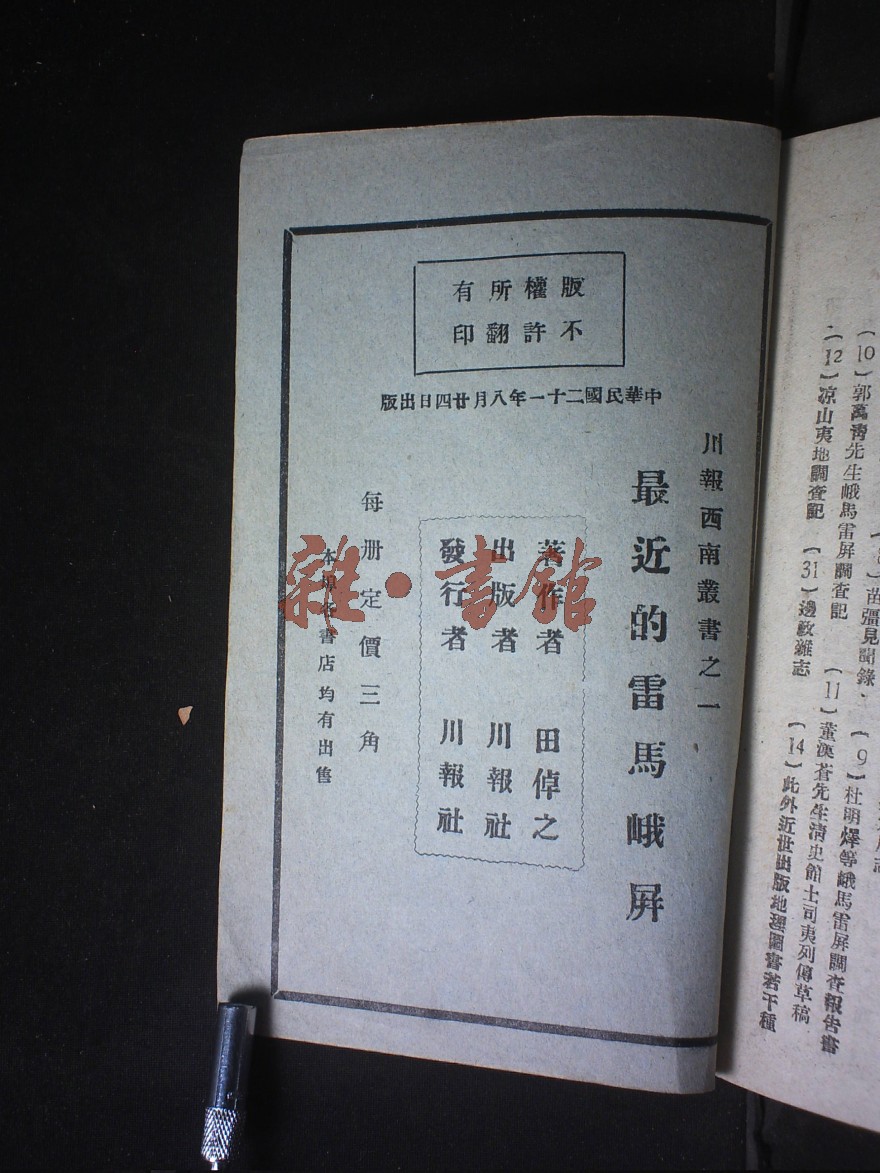 版權所有
不許翻印
中華民國二十一年八月廿四日出版
川報西南叢書之一
最近的雷馬峨屏
著作者 田倬之
出版者 川報社
發行者 川報社
每册定價三角
本埠各書店均有出售
雜·書館
苗疆見聞錄
(9)杜明燡等峨馬雷屏調查報告書
(10)郭萬青先生峨馬雷屏調查記
(11)董漢蒼先生清史館土司夷列傳草稿
(12)凉山夷地調查記
(31)邊政雜志
(14)此外近世出版地理圖書若干種